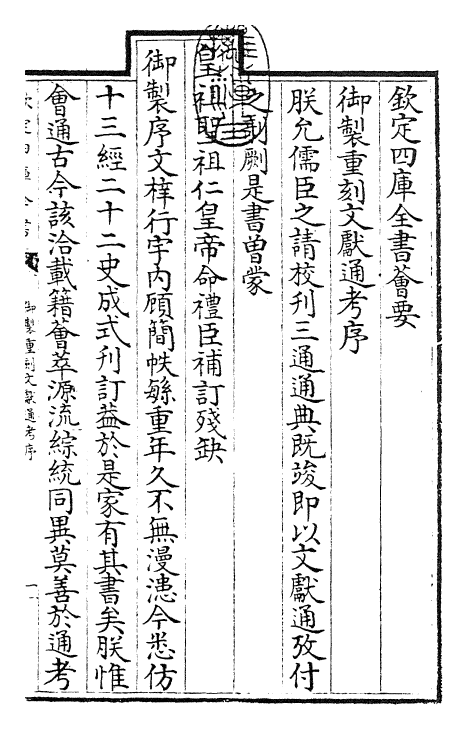 欽定四庫全書薈要
御製重刻文獻通考序
朕允儒臣之請校刊三通通典既竣即以文獻通攷付
之剞劂是書曽蒙
皇祖聖祖仁皇帝命禮臣補訂殘缺
御製序文梓行宇内顧簡帙緐重年久不無漫漶今悉仿
十三經二十二史成式刋訂益於是家有其書矣朕惟
會通古今該洽載籍薈萃源流綜統同異莫善於通考
御製重刻文獻通考序
一